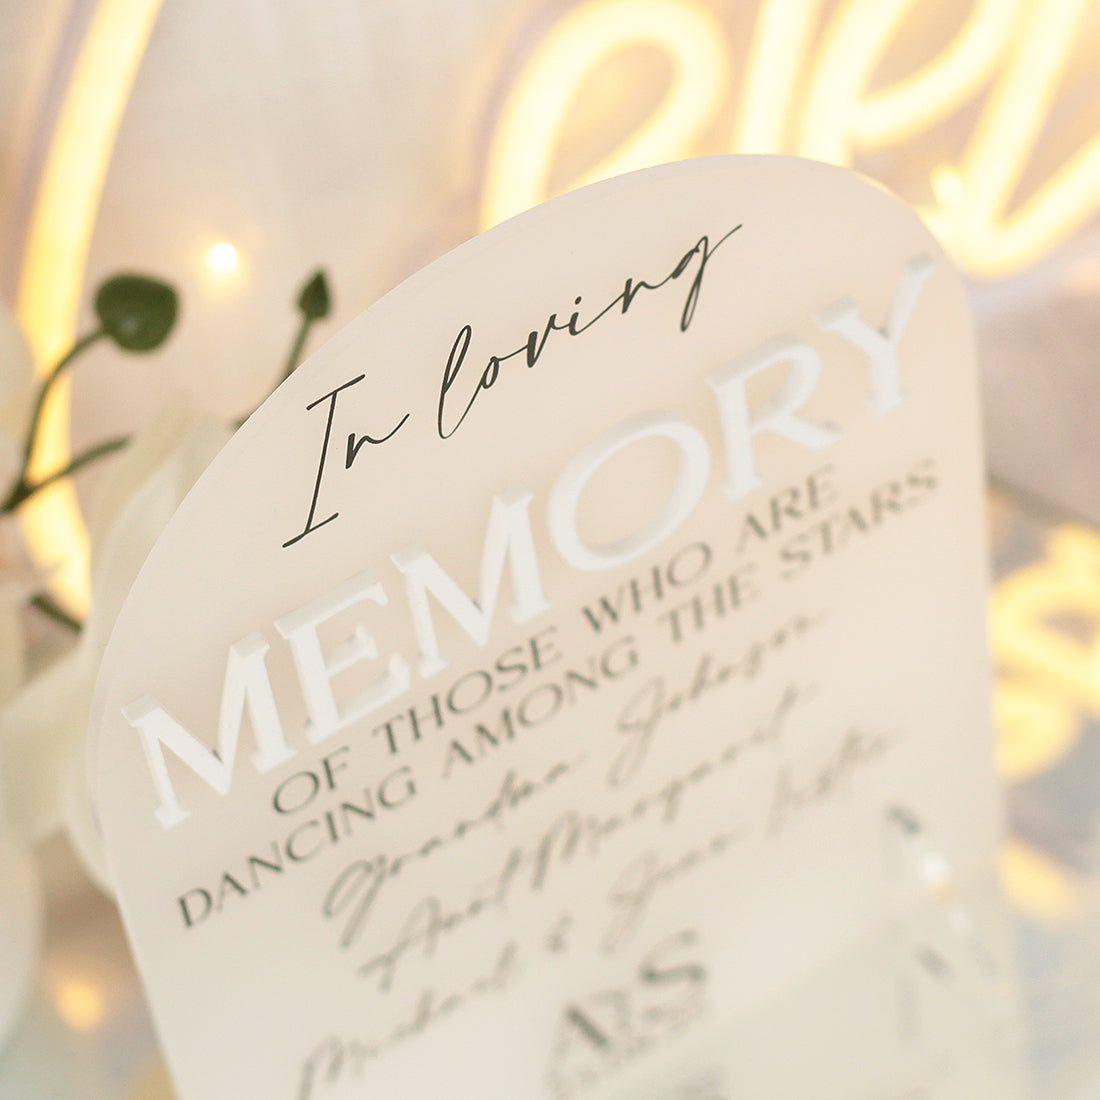 In loving
MEMORY
OF THOSE WHO ARE
DANCING AMONG THE STARS
Grandma Johnson
Aunt Margaret
Michael &